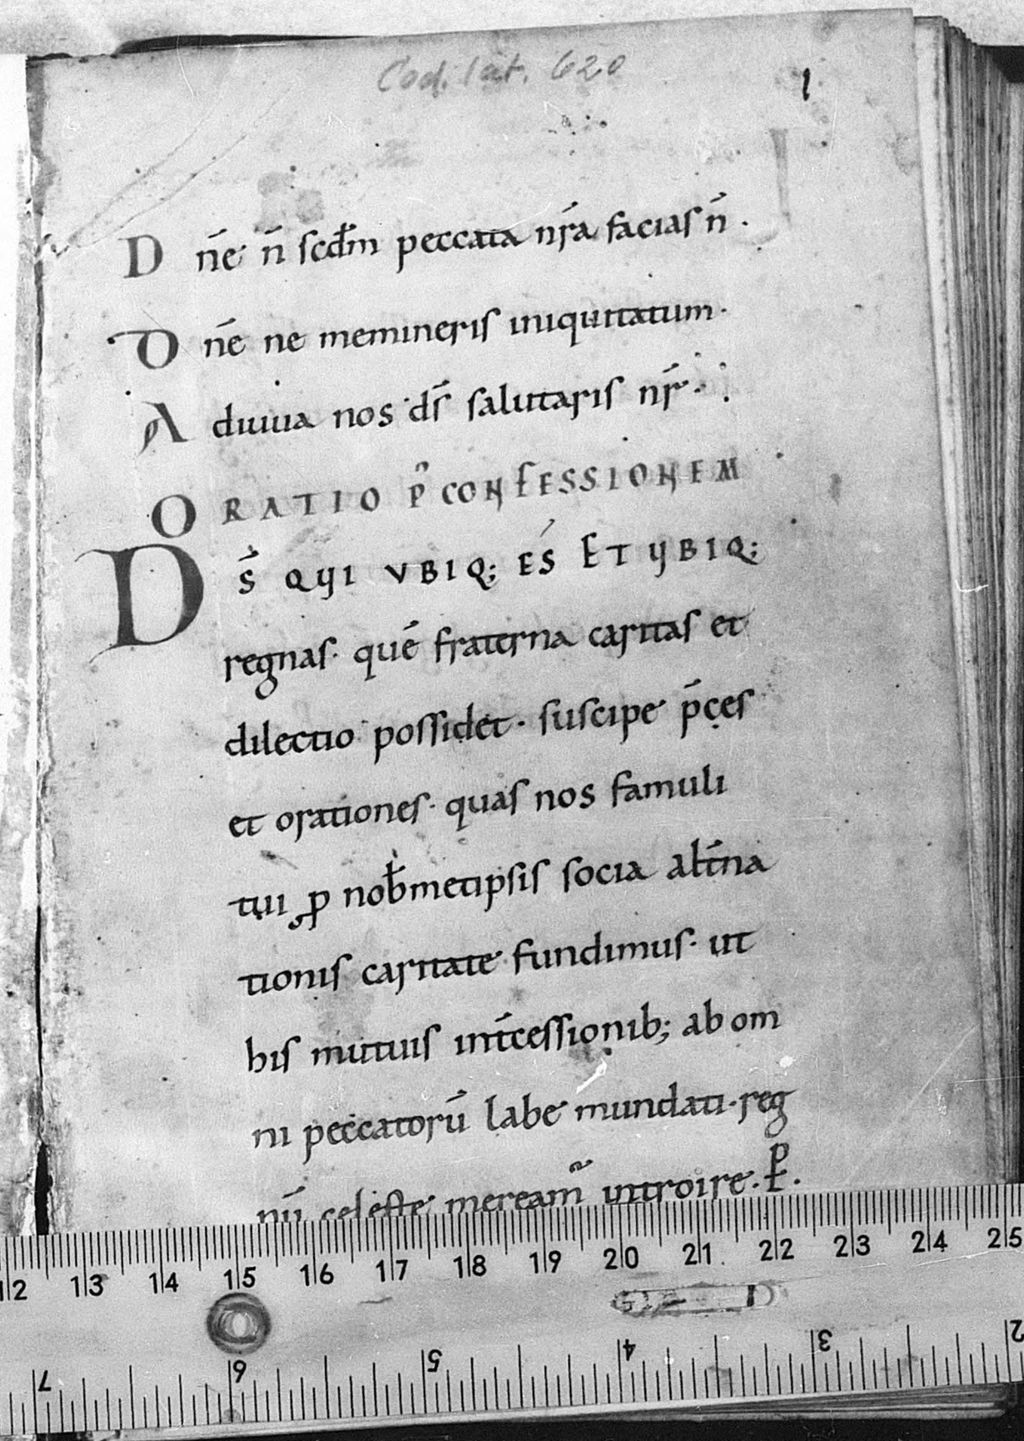 Cod. lat. 620
1
D n̄e n̄ scđm peccata nr̄a facias n̄ .
D n̄e ne memineris iniquitatum .
A diuua nos ds̄ salutaris nr̄ . :
ORATIO P̄ CONFESSIONEM
DS̄ QUI VBIQ; ES ET UBIQ;
regnas · quē fraterna caritas et
dilectio possidet · suscipe p̄ces
et orationes · quas nos famuli
tui ꝓ nob̄metipsis socia alt̄na
tionis caritate fundimus · ut
his mutuis int̄cessionib; ab om
ni peccatorū labe mundati · reg
nū celeste meream̄ introire . P .
12 13 14 15 16 17 18 19 20 21 22 23 24 25
7 6 5 4 3 2